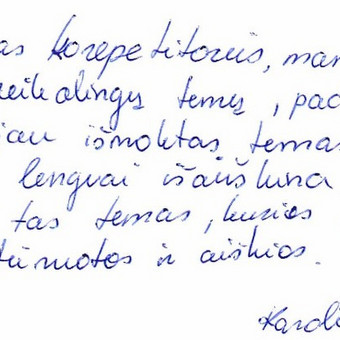 as korepetitorius, man
reikalingų temų, pad
iau išmoktas temas
lengvai išaiškina
tas temas, kurios
tūruotos ir aiškios.
Karoli